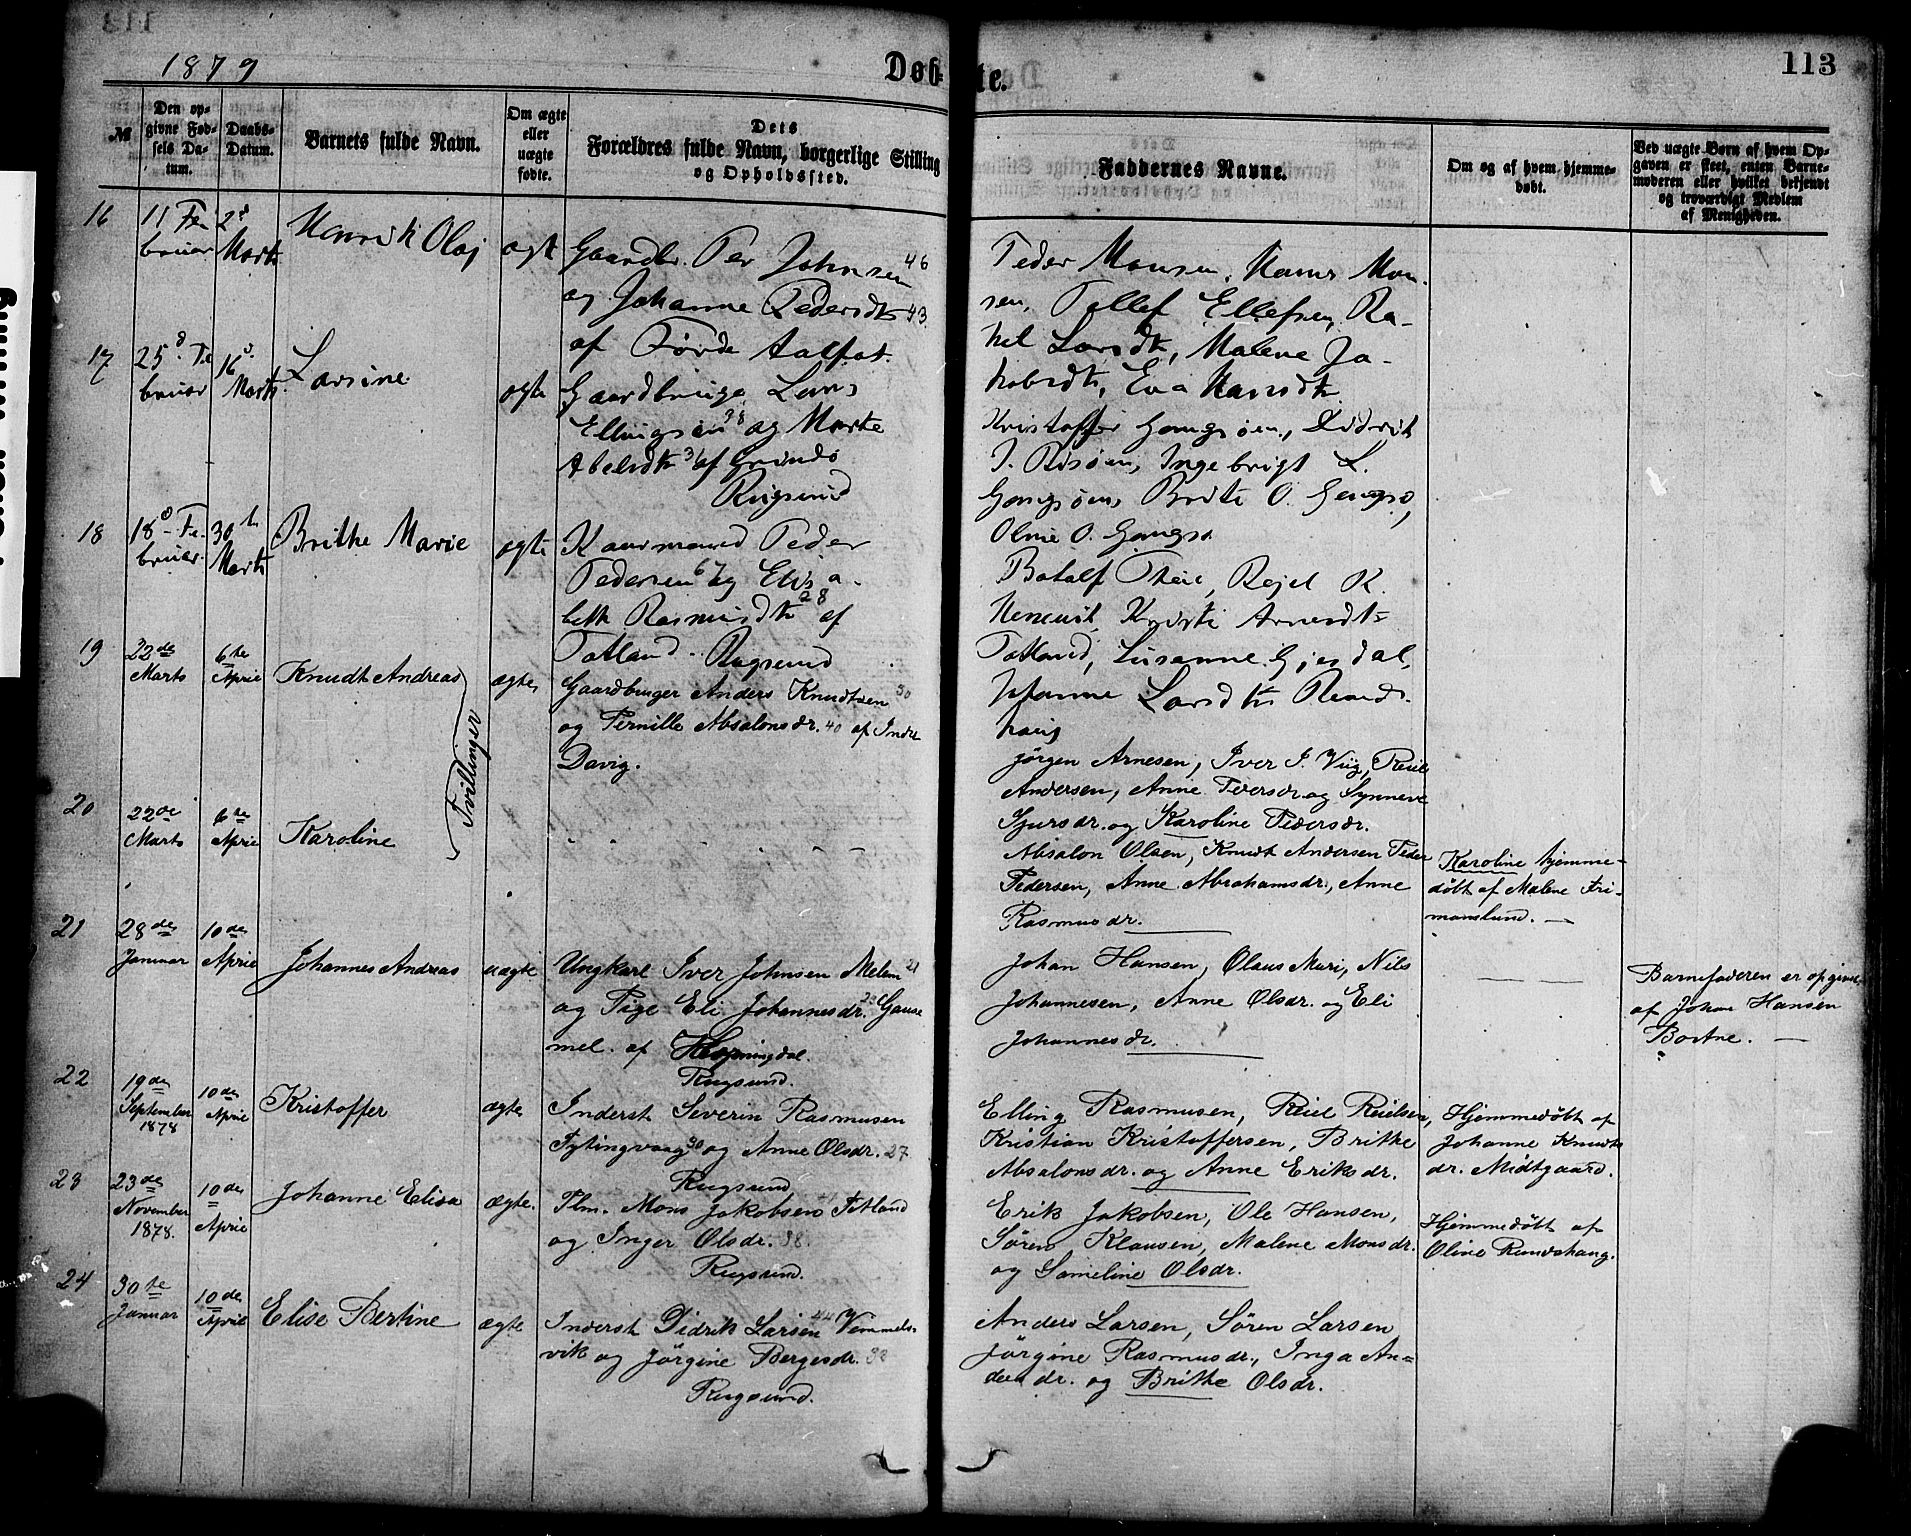 1879
Døb-te.
113
№
Den op-
givne Fød-
sels Da-
tum.
Daabs-
Datum.
Barnets fulde Navn.
Om ægte
eller
uægte
fødte.
Dets
Forældres fulde Navn, borgerlige Stilling
og Opholdssted.
Faddernes Navne.
Om og af hvem hjemme-
døbt.
Ved uægte Børn af hvem Op-
gaven er skeet, enten Barne-
moderen eller hvilket bekjendt
og troværdigt Medlem
af Menigheden.
16
11 Fe
bruar
2d
Marts
Henrik Olaj
ægte
Gaardbr. Per Johnsen 46
og Johanne Pedersdtr 43.
af Førde Aalfot.
Peder Monsen, Hans Mon
sen, Tollef Ellefsen, Ra-
kel Larsdtr, Malene Ja-
kobsdtr, Eva Hansdtr
17
25d. Fe
bruar
16d.
Marts
Larsine
ægte
Gaardbruger Lars
Ellingsen 38 og Marte
Abelsdtr 31 af
Rugsund
Kristoffer Gangsøen, Didrik
J. Risøen, Ingebrigt L.
Gangsøen, Brite O. Gangsø,
Oline O. Gangsø
18
18d Fe-
bruar
30te
Marts
Brithe Marie
ægte
Kaarmand Peder
Pedersen 67 og Elisa-
beth Rasmusdtr 28 af
Totland Rugsund
Botolf Rejel K.
Kristi Arnesdtr
Totland, Susanne Gjesdal,
Johanne Larsdtr Runds-
haug
19
22de
Marts
6te
April
Knudt Andreas
Tvillinger
ægte
Gaardbruger Anders Knudtsen 30
og Pernille Absalonsdr. 40 af Indre
Davig.
Jørgen Arnesen, Iver I Viig, Reiel
Andersen, Anne Pedersdr. og Synneve
Sjursdr. og Karoline Pedersdr.
20
22de
Marts
6te
April
Karoline
Absalon Olsen, Knudt Andersen Peder
Pedersen, Anne Abrahamsdr., Anne
Rasmusdr.
Karoline hjemme-
døbt af Malene Fri-
manslund.
21
28de
Januar
10de
April
Johannes Andreas
uægte
Ungkarl Iver Johnsen Melem 21
og Pige Eli Johannesdr. 23 Gause
mel. af Hopningdal.
Rugsund.
Johan Hansen, Olaus Muri, Nils
Johannesen, Anne Olsdr. og Eli
Johannesdr.
Barnefaderen er opgivet
af Johan Hansen
Bortne.
22
19de
September
1878
10de
April
Kristoffer
ægte
Inderst Severin Rasmusen
Tytingvaag 30 og Anne Olsdr. 27
Rugsund
Elling Rasmusen, Reiel Reielsen,
Kristian Kristoffersen, Brithe
Absalonsdr. og Anne Eriksdr.
Hjemmedøbt af
Johanne Knudts
dr. Midtgaard.
23
23de
November
1878.
10de
April
Johanne Elisa
ægte.
Plm. Mons Jakobsen Totland
og Inger Olsdr. 38.
Rugsund.
Erik Jakobsen, Ole Hansen,
Søren Klausen, Malene Monsdr.
og Sameline Olsdr.
Hjemmedøbt af
Oline Rundshaug.
24
30te
Januar
10de
April
Elise Bertine
ægte
Inderst Didrik Larsen 44 Vemmels-
vik og Jørgine Bergesdr. 38
Rugsund.
Anders Larsen, Søren Larsen
Jørgine Rasmusdr., Inga An-
dersdr. og Brithe Olsdr.